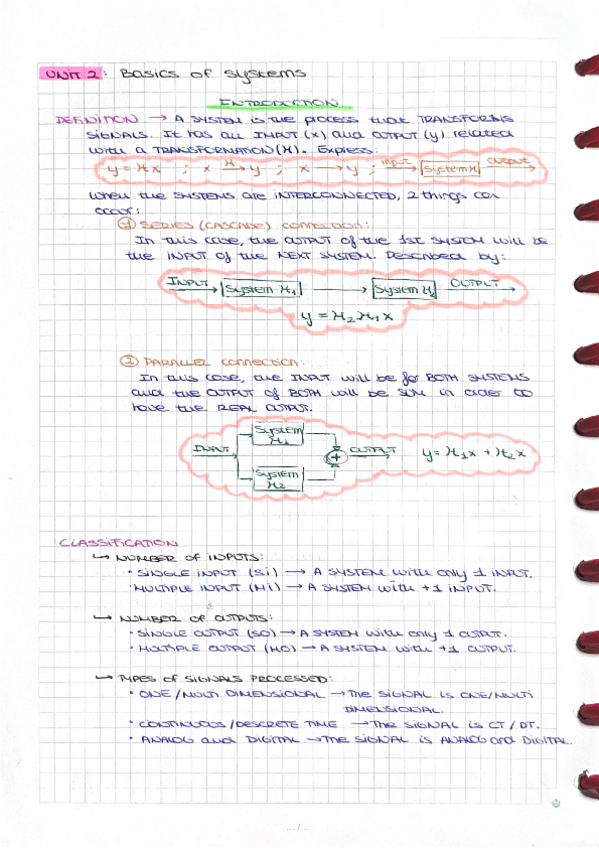 UNIT 2: Basics of systems
INTRODUCTION
DEFINITION → A SYSTEM is the process that TRANSFORMS
SIGNALS. It has an INPUT (x) and OUTPUT (y) related
with a TRANSFORMATION (H). Express:
y = Hx ; x →H y ; x → y ; input → System H → output
when the SYSTEMS are INTERCONNECTED, 2 things can
occur:
① SERIES (CASCADE) connection:
In this case, the OUTPUT of the 1st SYSTEM will be
the INPUT of the NEXT SYSTEM. Described by:
INPUT → System H1 → System H2 OUTPUT →
y = H2 H1 x
② PARALLEL connection:
In this case, the INPUT will be for BOTH SYSTEMS
and the OUTPUT of BOTH will be SUM in order to
have the REAL OUTPUT.
System H1
INPUT → + OUTPUT → y = H1x + H2x
System H2
CLASSIFICATION
↳ NUMBER OF INPUTS:
· SINGLE INPUT (Si) → A SYSTEM with only 1 INPUT.
· MULTIPLE INPUT (Mi) → A SYSTEM with +1 INPUT.
↳ NUMBER OF OUTPUTS:
· SINGLE OUTPUT (SO) → A SYSTEM with only 1 OUTPUT.
· MULTIPLE OUTPUT (MO) → A SYSTEM with +1 OUTPUT.
↳ TYPES OF SIGNALS PROCESSED:
· ONE/MULTI DIMENSIONAL → The SIGNAL is ONE/MULTI
DIMENSIONAL.
· CONTINUOUS/DESCRETE TIME → The SIGNAL is CT/DT.
· ANALOG and DIGITAL → The SIGNAL is ANALOG and DIGITAL.